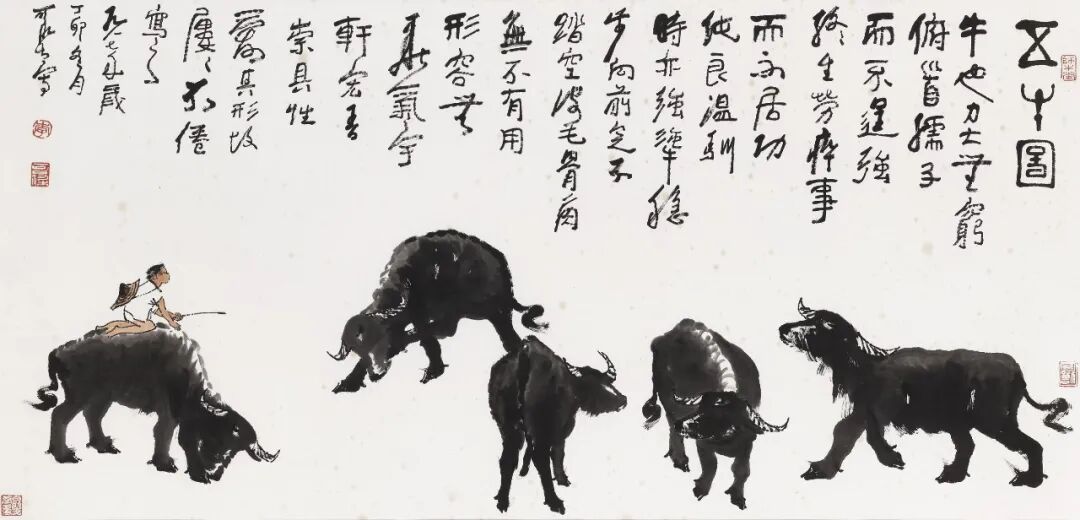 五牛圖
牛也力大無窮
俯首孺子
而不逞強
終生勞瘁事
而不居功
純良溫馴
時亦強犟穩
步向前足不
踏空皮毛骨角
無不有用
形容無
華氣宇
軒宏吾
崇其性
愛其形故
屢〻不倦
寫之
年歲
丁卯冬月
可染寫